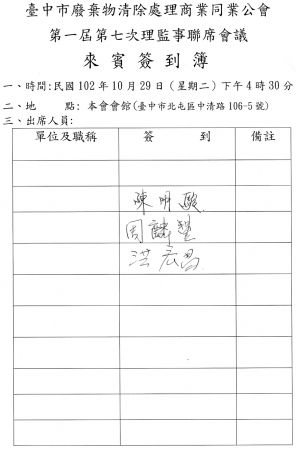 臺中市廢棄物清除處理商業同業公會
第一屆第七次理監事聯席會議
來賓簽到簿
一、時間:民國102年10月29日(星期二)下午4時30分
二、地　　點:本會會館(臺中市北屯區中清路106-5號)
三、出席人員:
單位及職稱　簽　到　備註
陳明
周麟
洪宏昌